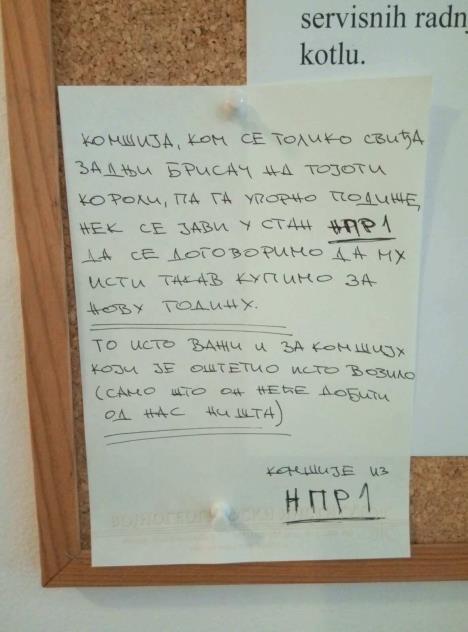 servisnih radnj
kotlu.
КОМШИЈА, КОМ СЕ ТОЛИКО СВИЂА
ЗАДЊИ БРИСАЧ НА ТОЈОТИ
КОРОЛИ, ПА ГА УПОРНО ПОДИЖЕ,
НЕК СЕ ЈАВИ У СТАН НПР1
ДА СЕ ДОГОВОРИМО ДА МУ
ИСТИ ТАКАВ КУПИМО ЗА
НОВУ ГОДИНУ.
ТО ИСТО ВАЖИ И ЗА КОМШИЈУ
КОЈИ ЈЕ ОШТЕТИО ИСТО ВОЗИЛО
(САМО ШТО ОН НЕЋЕ ДОБИТИ
ОД НАС НИШТА)
КОМШИЈЕ ИЗ
НПР1